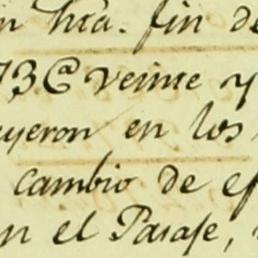 n hra. fin de
73 @ veinte y
uyeron en los
cambio de es
n el Parage,